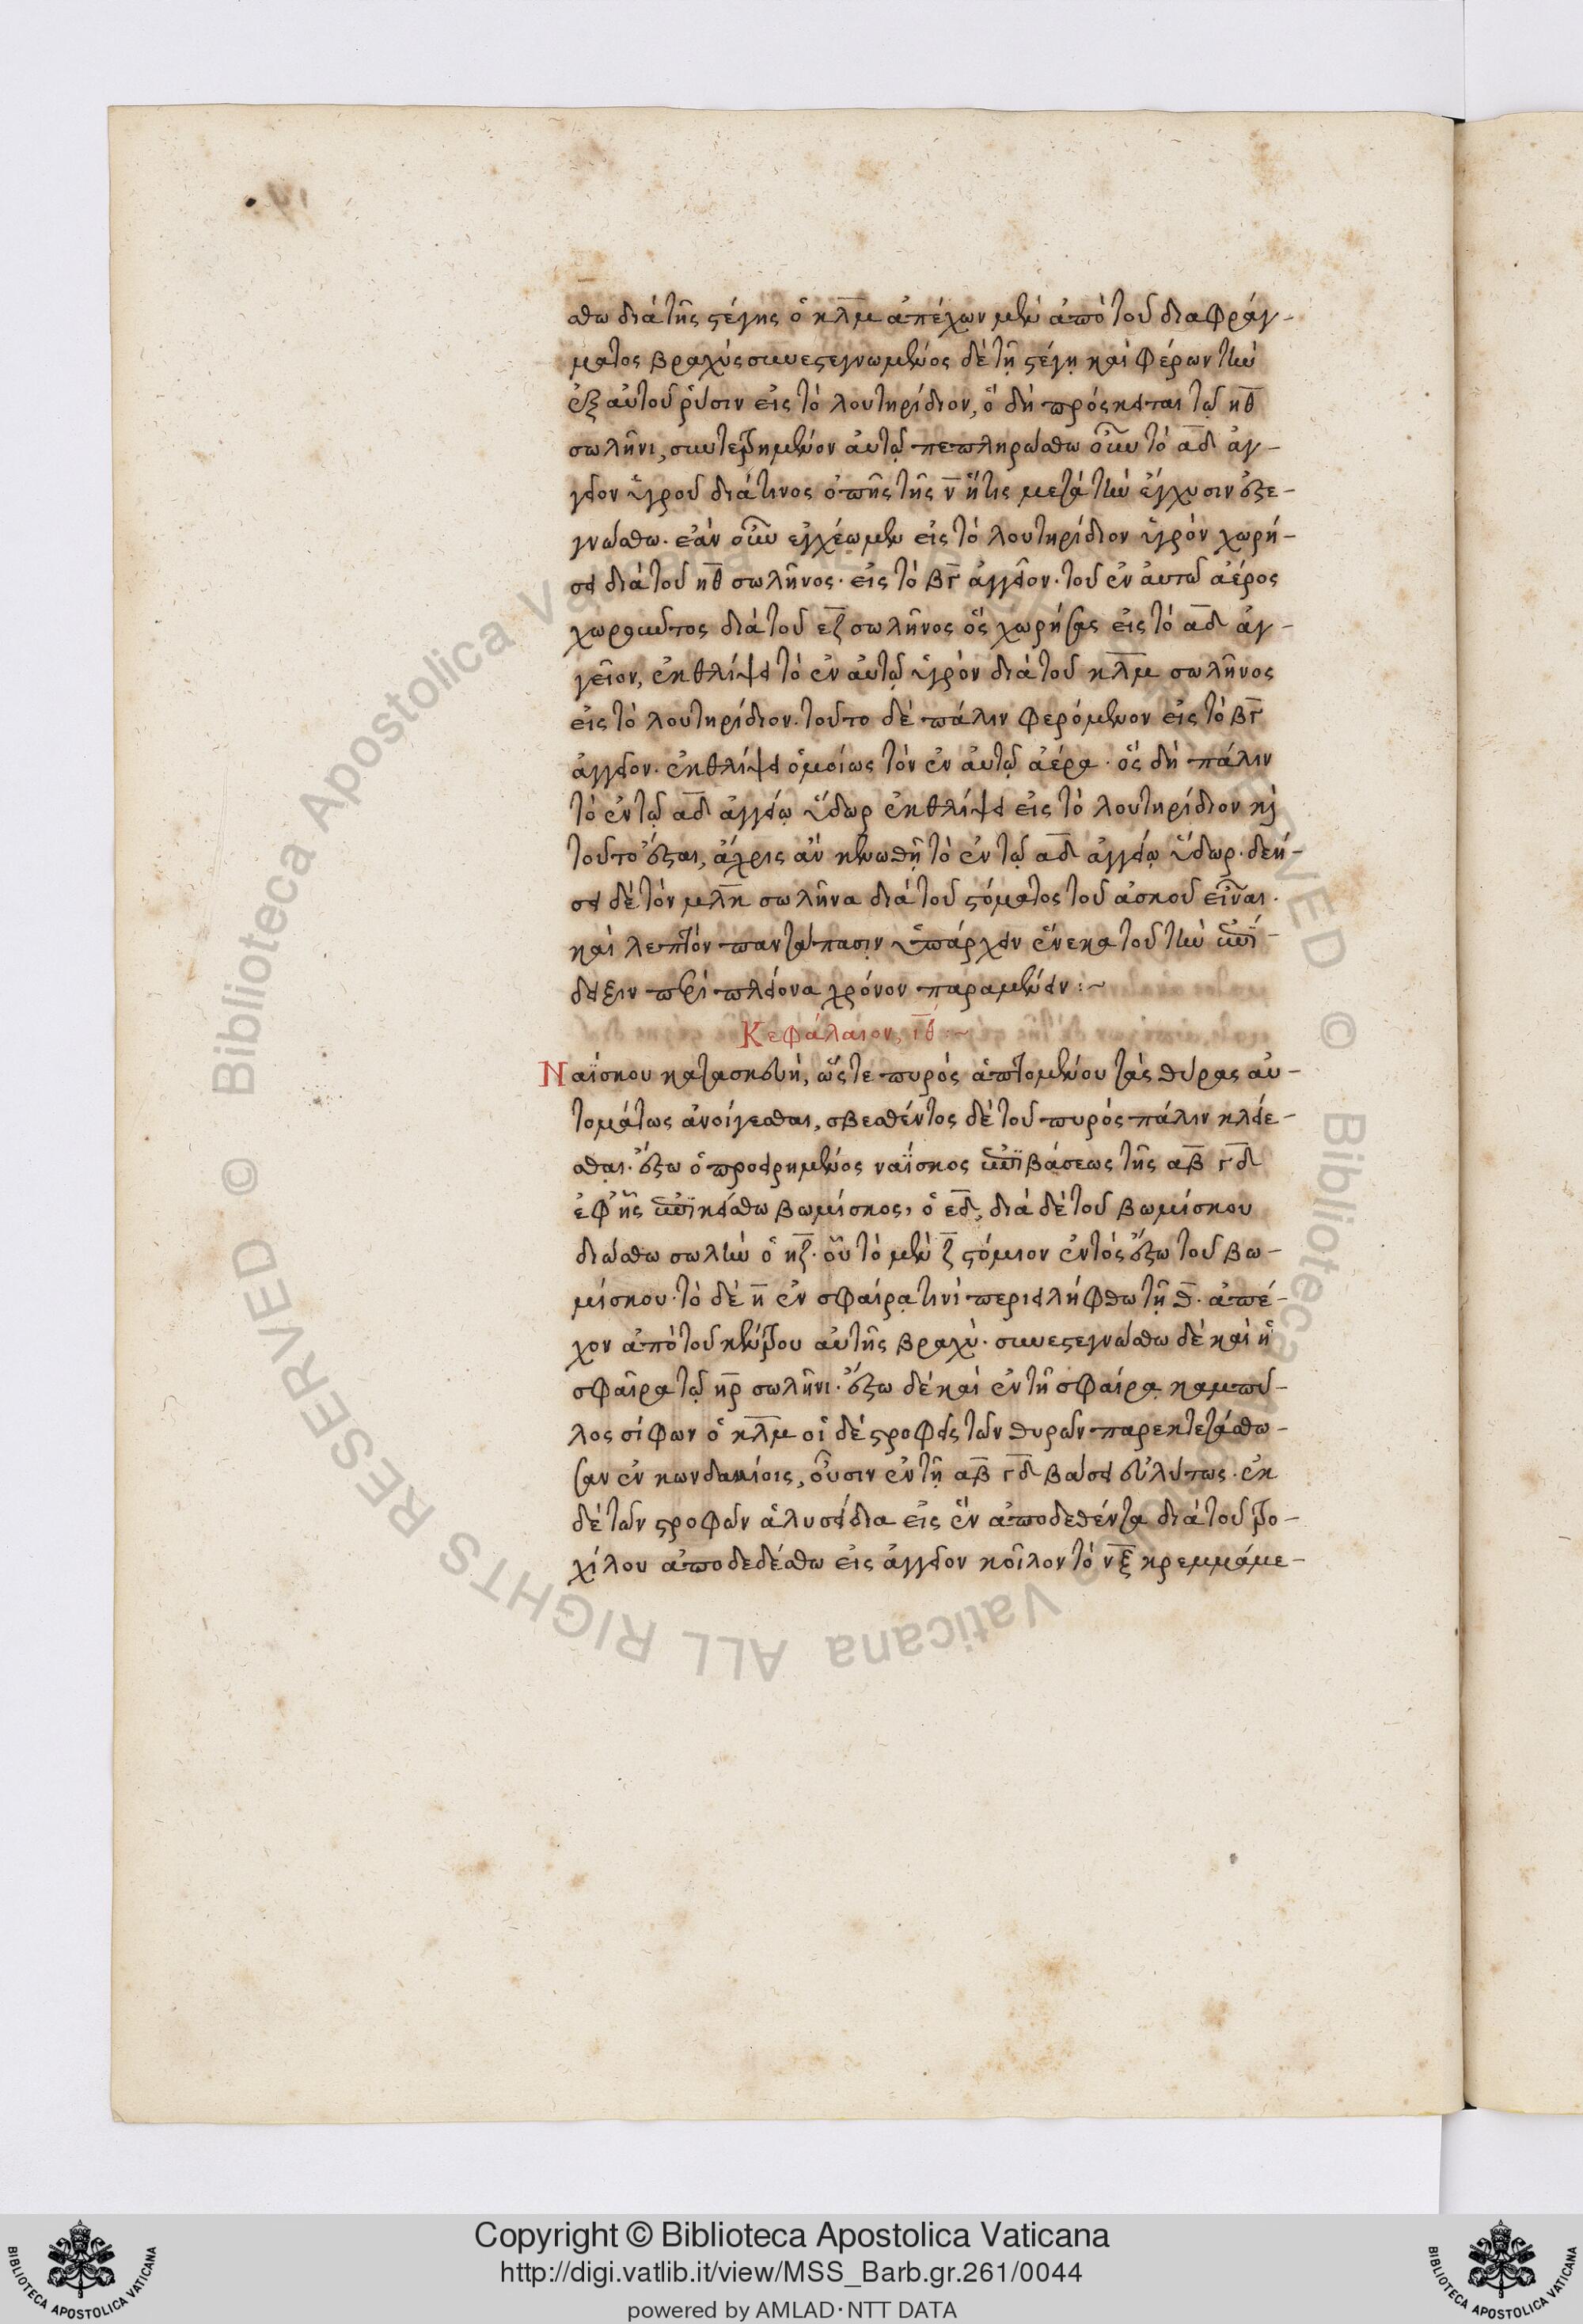 σθω διὰ τῆς στέγης ὁ κλμ ἀπέχων μὲν ἀπὸ τοῦ διαφράγ-
ματος βραχὺ συνεστεγνωμένος δὲ τῇ στέγῃ καὶ φέρων τὴν
ἐξ αὐτοῦ ῥύσιν εἰς τὸ λουτηρίδιον, ὃ δὴ πρόσκειται τῷ ηθ
σωλῆνι, συντετρημένον αὐτῷ πεπληρώσθω οὖν τὸ αδ ἀγ-
γεῖον ὑγροῦ διά τινος ὀπῆς τῆς ν ἥτις μετὰ τὴν ἔγχυσιν ἐστε-
γνώσθω. ἐὰν οὖν ἐγχέωμεν εἰς τὸ λουτηρίδιον ὑγρὸν χωρή-
σει διὰ τοῦ ηθ σωλῆνος. εἰς τὸ βγ ἀγγεῖον. τοῦ ἐν αὐτῶ ἀέρος
χωροῦντος διὰ τοῦ εζ σωλῆνος ὃς χωρήσας εἰς τὸ αδ ἀγ-
γεῖον, ἐκθλίψει τὸ ἐν αὐτῷ ὑγρὸν διὰ τοῦ κλμ σωλῆνος
εἰς τὸ λουτηρίδιον. τοῦτο δὲ πάλιν φερόμενον εἰς τὸ βγ
ἀγγεῖον. ἐκθλίψει ὁμοίως τὸν ἐν αὐτῷ ἀέρα. ὃς δὴ πάλιν
τὸ ἐν τῷ αδ ἀγγείῳ ὕδωρ ἐκθλίψει εἰς τὸ λουτηρίδιον κὶ
τοῦτο ἔσται, ἄχρις ἂν κενωθῇ τὸ ἐν τῷ αδ ἀγγείῳ ὕδωρ. δεή-
σει δὲ τὸν μλκ σωλῆνα διὰ τοῦ στόματος τοῦ ἀσκοῦ εἶναι.
καὶ λεπτὸν παντάπασιν ὑπάρχειν ἕνεκα τοῦ τὴν ἐπί-
δειξιν περὶ πλείονα χρόνον παραμένειν :~
Κεφάλαιον, ιθ :~
Ναΐσκου κατασκευή, ὥστε πυρὸς ἁπτομένου τὰς θύρας αὐ-
τομάτως ἀνοίγεσθαι, σβεσθέντος δὲ τοῦ πυρὸς πάλιν κλείε-
σθαι. ἔστω ὁ προειρημένος ναΐσκος ἐπὶ βάσεως τῆς αβ γδ
ἐφ ἧς ἐπικείσθω βωμίσκος, ὁ εδ, διὰ δὲ τοῦ βωμίσκου
διώσθω σωλὴν ὁ ηζ. οὗ τὸ μὲν ζ στόμιον ἐντὸς ἔστω τοῦ βω-
μίσκου. τὸ δὲ η ἐν σφαίρᾳ τινὶ περιειλήφθω τῇ θ. ἀπέ-
χον ἀπὸ τοῦ κέντρου αὐτῆς βραχὺ. συνεστεγνώσθω δὲ καὶ ἡ
σφαῖρα τῷ ηρ σωλῆνι. ἔστω δὲ καὶ ἐν τῇ σφαίρᾳ καμπύ-
λος σίφων ὁ κλμ οἱ δὲ στροφεῖς τῶν θυρῶν παρεκτετάσθω-
σαν ἐν κωνδακίοις, οὖσιν ἐν τῇ αβ γδ βάσει εὐλύτως. ἐκ
δὲ τῶν στροφῶν ἁλυσείδια εἰς ἓν ἀποδεθέντα διὰ τοῦ τρο-
χίλου ἀποδεδέσθω εἰς ἀγγεῖον κοῖλον τὸ νξ κρεμμάμε-
Copyright © Biblioteca Apostolica Vaticana
http://digi.vatlib.it/view/MSS_Barb.gr.261/0044
powered by AMLAD·NTT DATA